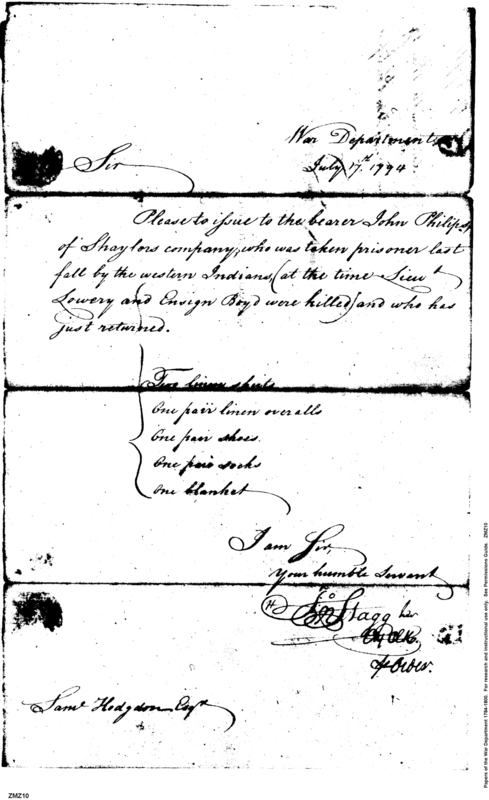 War Department
July 17th 1794
Sir
Please to issue to the bearer John Philips,
of Shaylors company, who was taken prisoner last
fall by the western Indians, (at the time Lieut
Lowery and Ensign Boyd were killed) and who has
just returned.
Two linen shirts
One pair linen overalls
One pair shoes
One pair socks
One blanket
I am Sir,
your humble servant
Jno Stagg Jr
Saml Hodgdon Esqr
ZMZ10
Papers of the War Department 1784-1800. For research and instructional use only. See Permissions Guide. ZMZ10